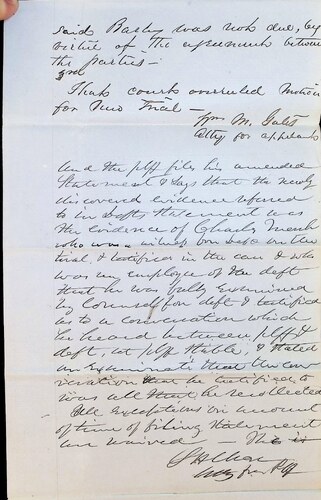 said Barley was not due, by
virtue of the agreements between
the parties —
3rd
That court overruled motion
for New Trial —
Wm M.
Atty for appelant
And the plff files his amended
Statement & says that the newly
discovered evidence referred
to in Defts Statement was
the evidence of Charles
who was a witness on the
trial & testified in the case & who
was an employee of the deft
that he was fully examined
by Counsel for deft & testified
as to a conversation which
he heard between plff &
deft, at plff Stable, & stated
on Examination that the con
versation that he testified to
was all that he recollected
All exceptions on amount
of time of filing Statement
are waived —
Atty for Plff